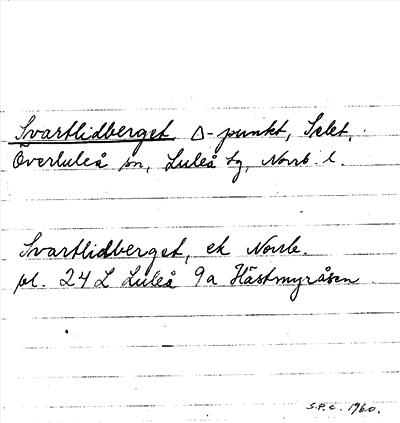 Svartlidberget △-punkt, Selet,
Överluleå sn, Luleå tg, Norrb. l.
Svartlidberget, ek Norrb.
bl. 24 L Luleå 9a Hästmyråsen.
S.P.C. 1960.